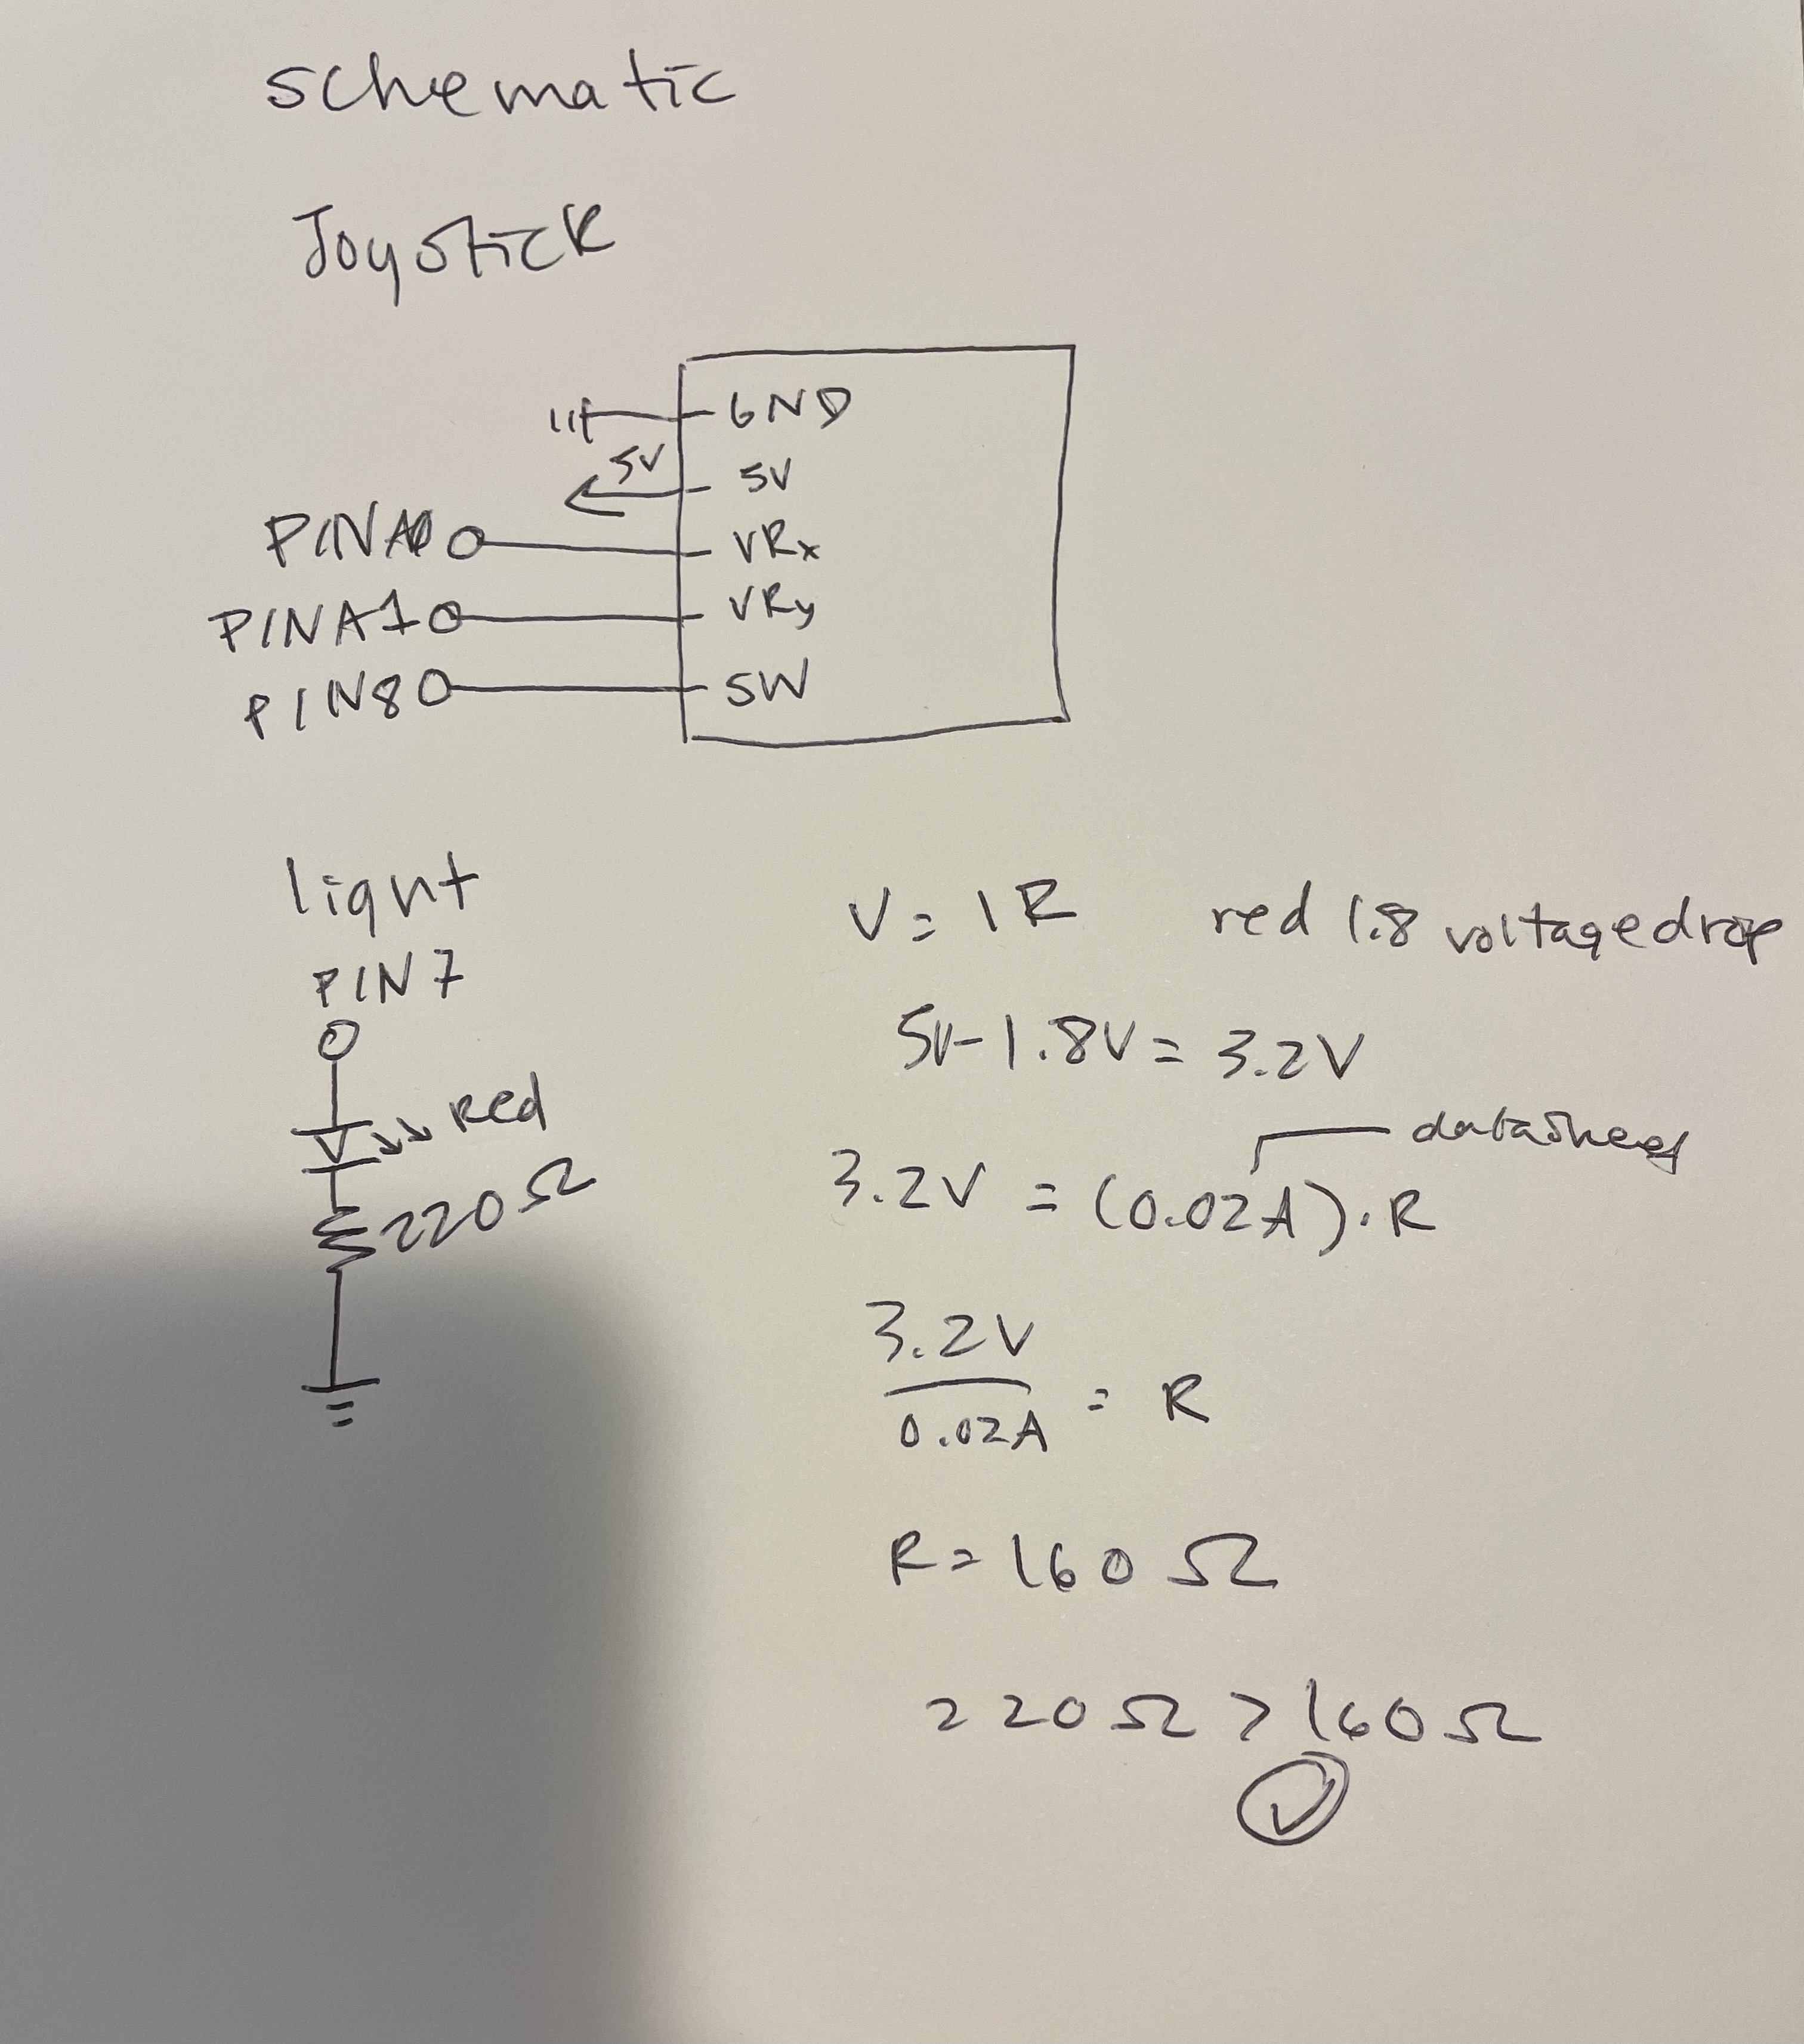 schematic
Joystick
GND
5V 5V
PINA0 VRx
PINA1 VRy
PIN8 SW
light
PIN7
Red
220Ω
V = IR red 1.8 voltage drop
5V-1.8V = 3.2V
datasheet
3.2V = (0.02A)·R
3.2V
0.02A = R
R = 160 Ω
220Ω > 160Ω